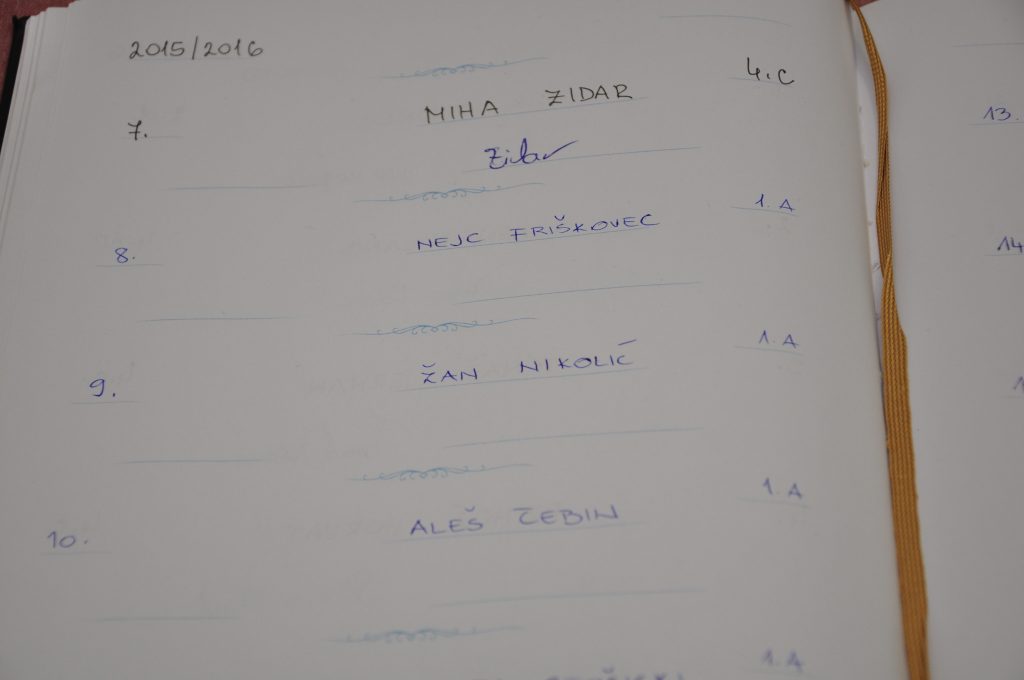 2015/2016
4.C
7. MIHA ZIDAR
Zidar
1. A
8. NEJC FRIŠKOVEC
1. A
9. ŽAN NIKOLIĆ
1. A
10. ALEŠ ČEBIN
1. A
13.
14